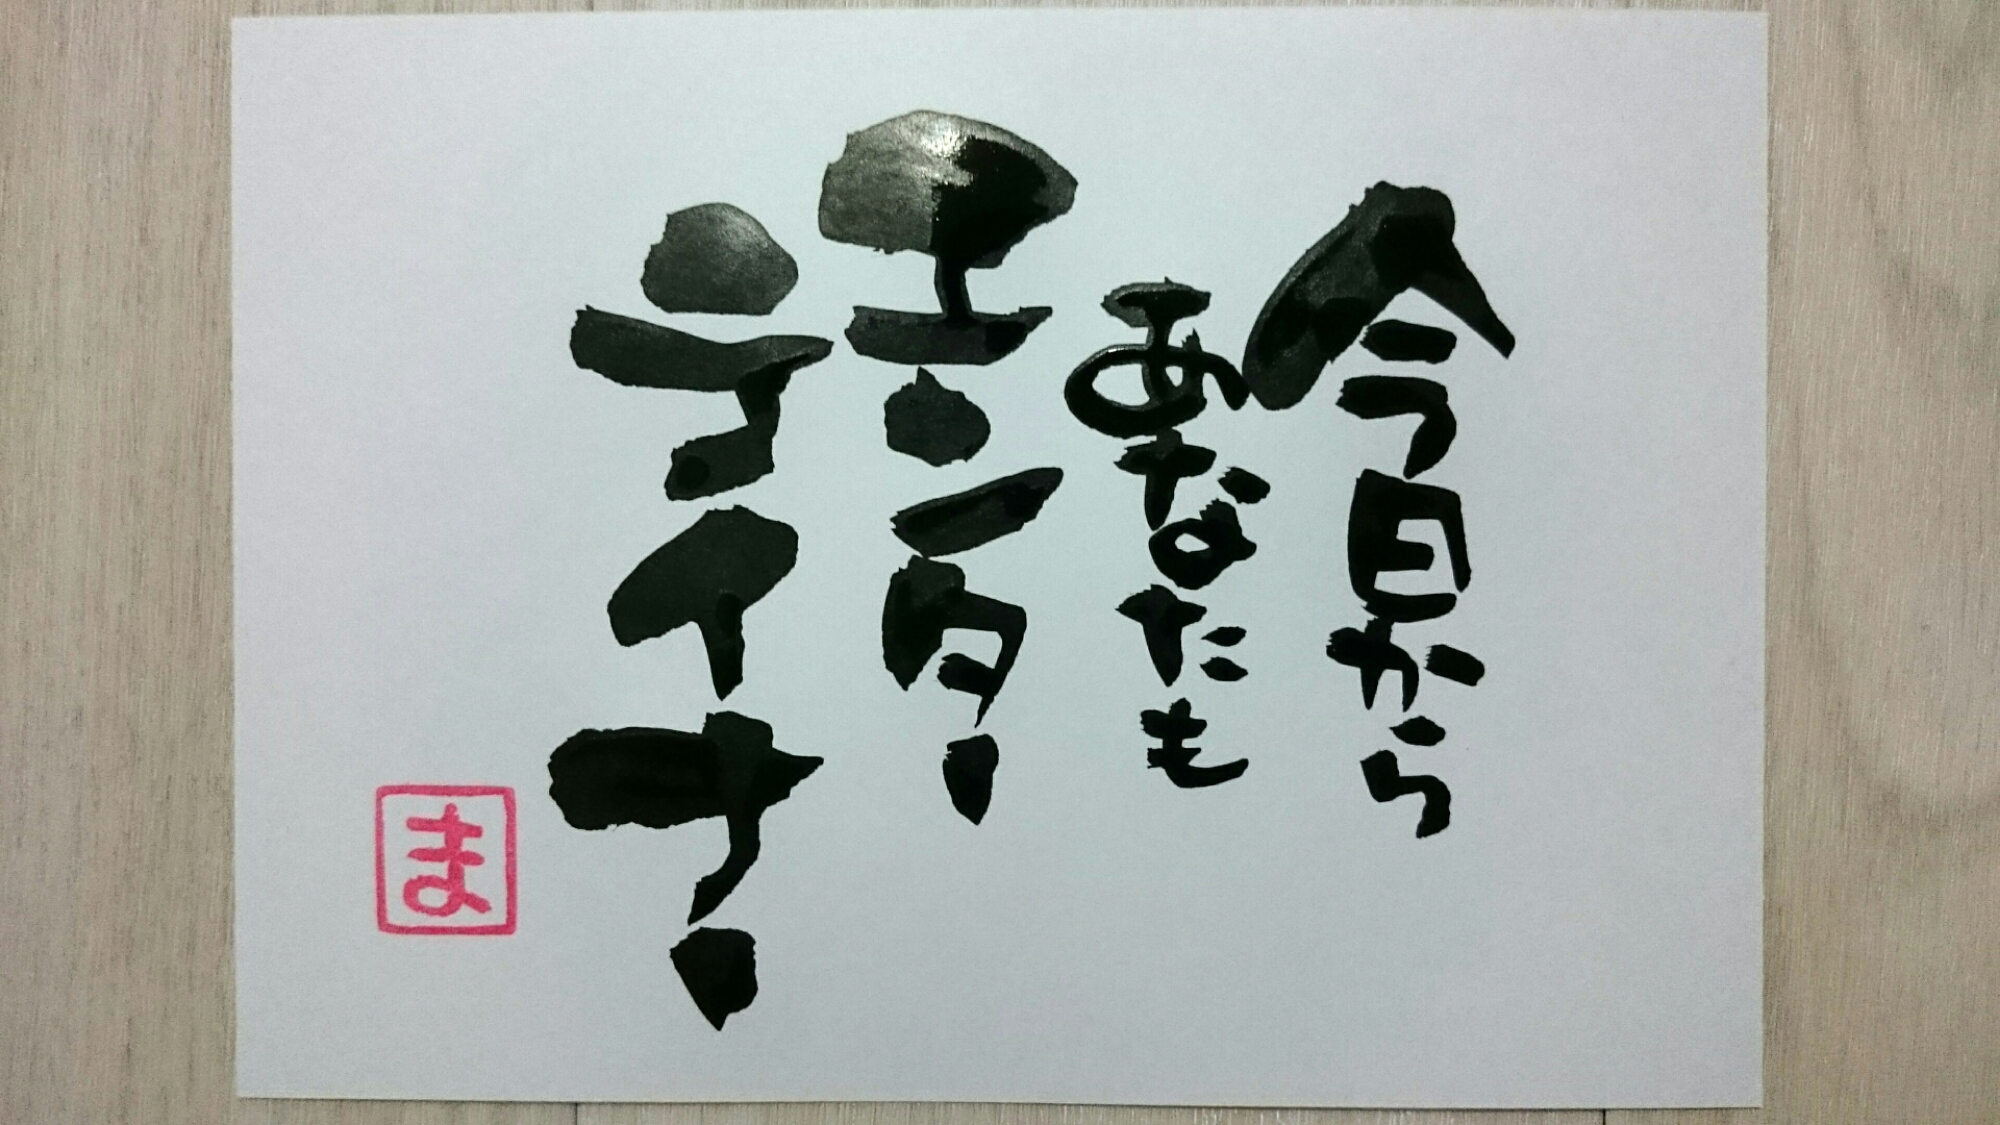 今日から
あなたも
エンター
テイナー
ま